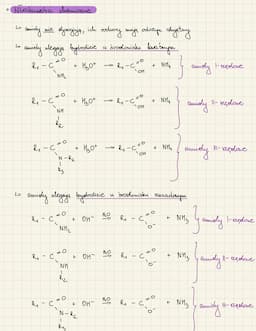 • Właściwości chemiczne
↳ amidy nie dysocjują, ich roztwory mają odczyn obojętny
↳ amidy ulegają hydrolizie w środowisku kwasowym
R₁ – C =O NH₂ + H₃O⁺ → R₁ – C =O OH + NH₄ } amidy I-rzędowe
R₁ – C =O NH R₂ + H₃O⁺ → R₁ – C =O OH + NH₄ } amidy II-rzędowe
R₁ – C =O N–R₂ R₃ + H₃O⁺ → R₁ – C =O OH + NH₄ } amidy III-rzędowe
↳ amidy ulegają hydrolizie w środowisku zasadowym
R₁ – C =O NH₂ + OH⁻ H₂O R₁ – C =O O⁻ + NH₃ } amidy I-rzędowe
R₁ – C =O NH R₂ + OH⁻ H₂O R₁ – C =O O⁻ + NH₃ } amidy II-rzędowe
R₁ – C =O N–R₂ R₃ + OH⁻ H₂O R₁ – C =O O⁻ + NH₃ } amidy III-rzędowe